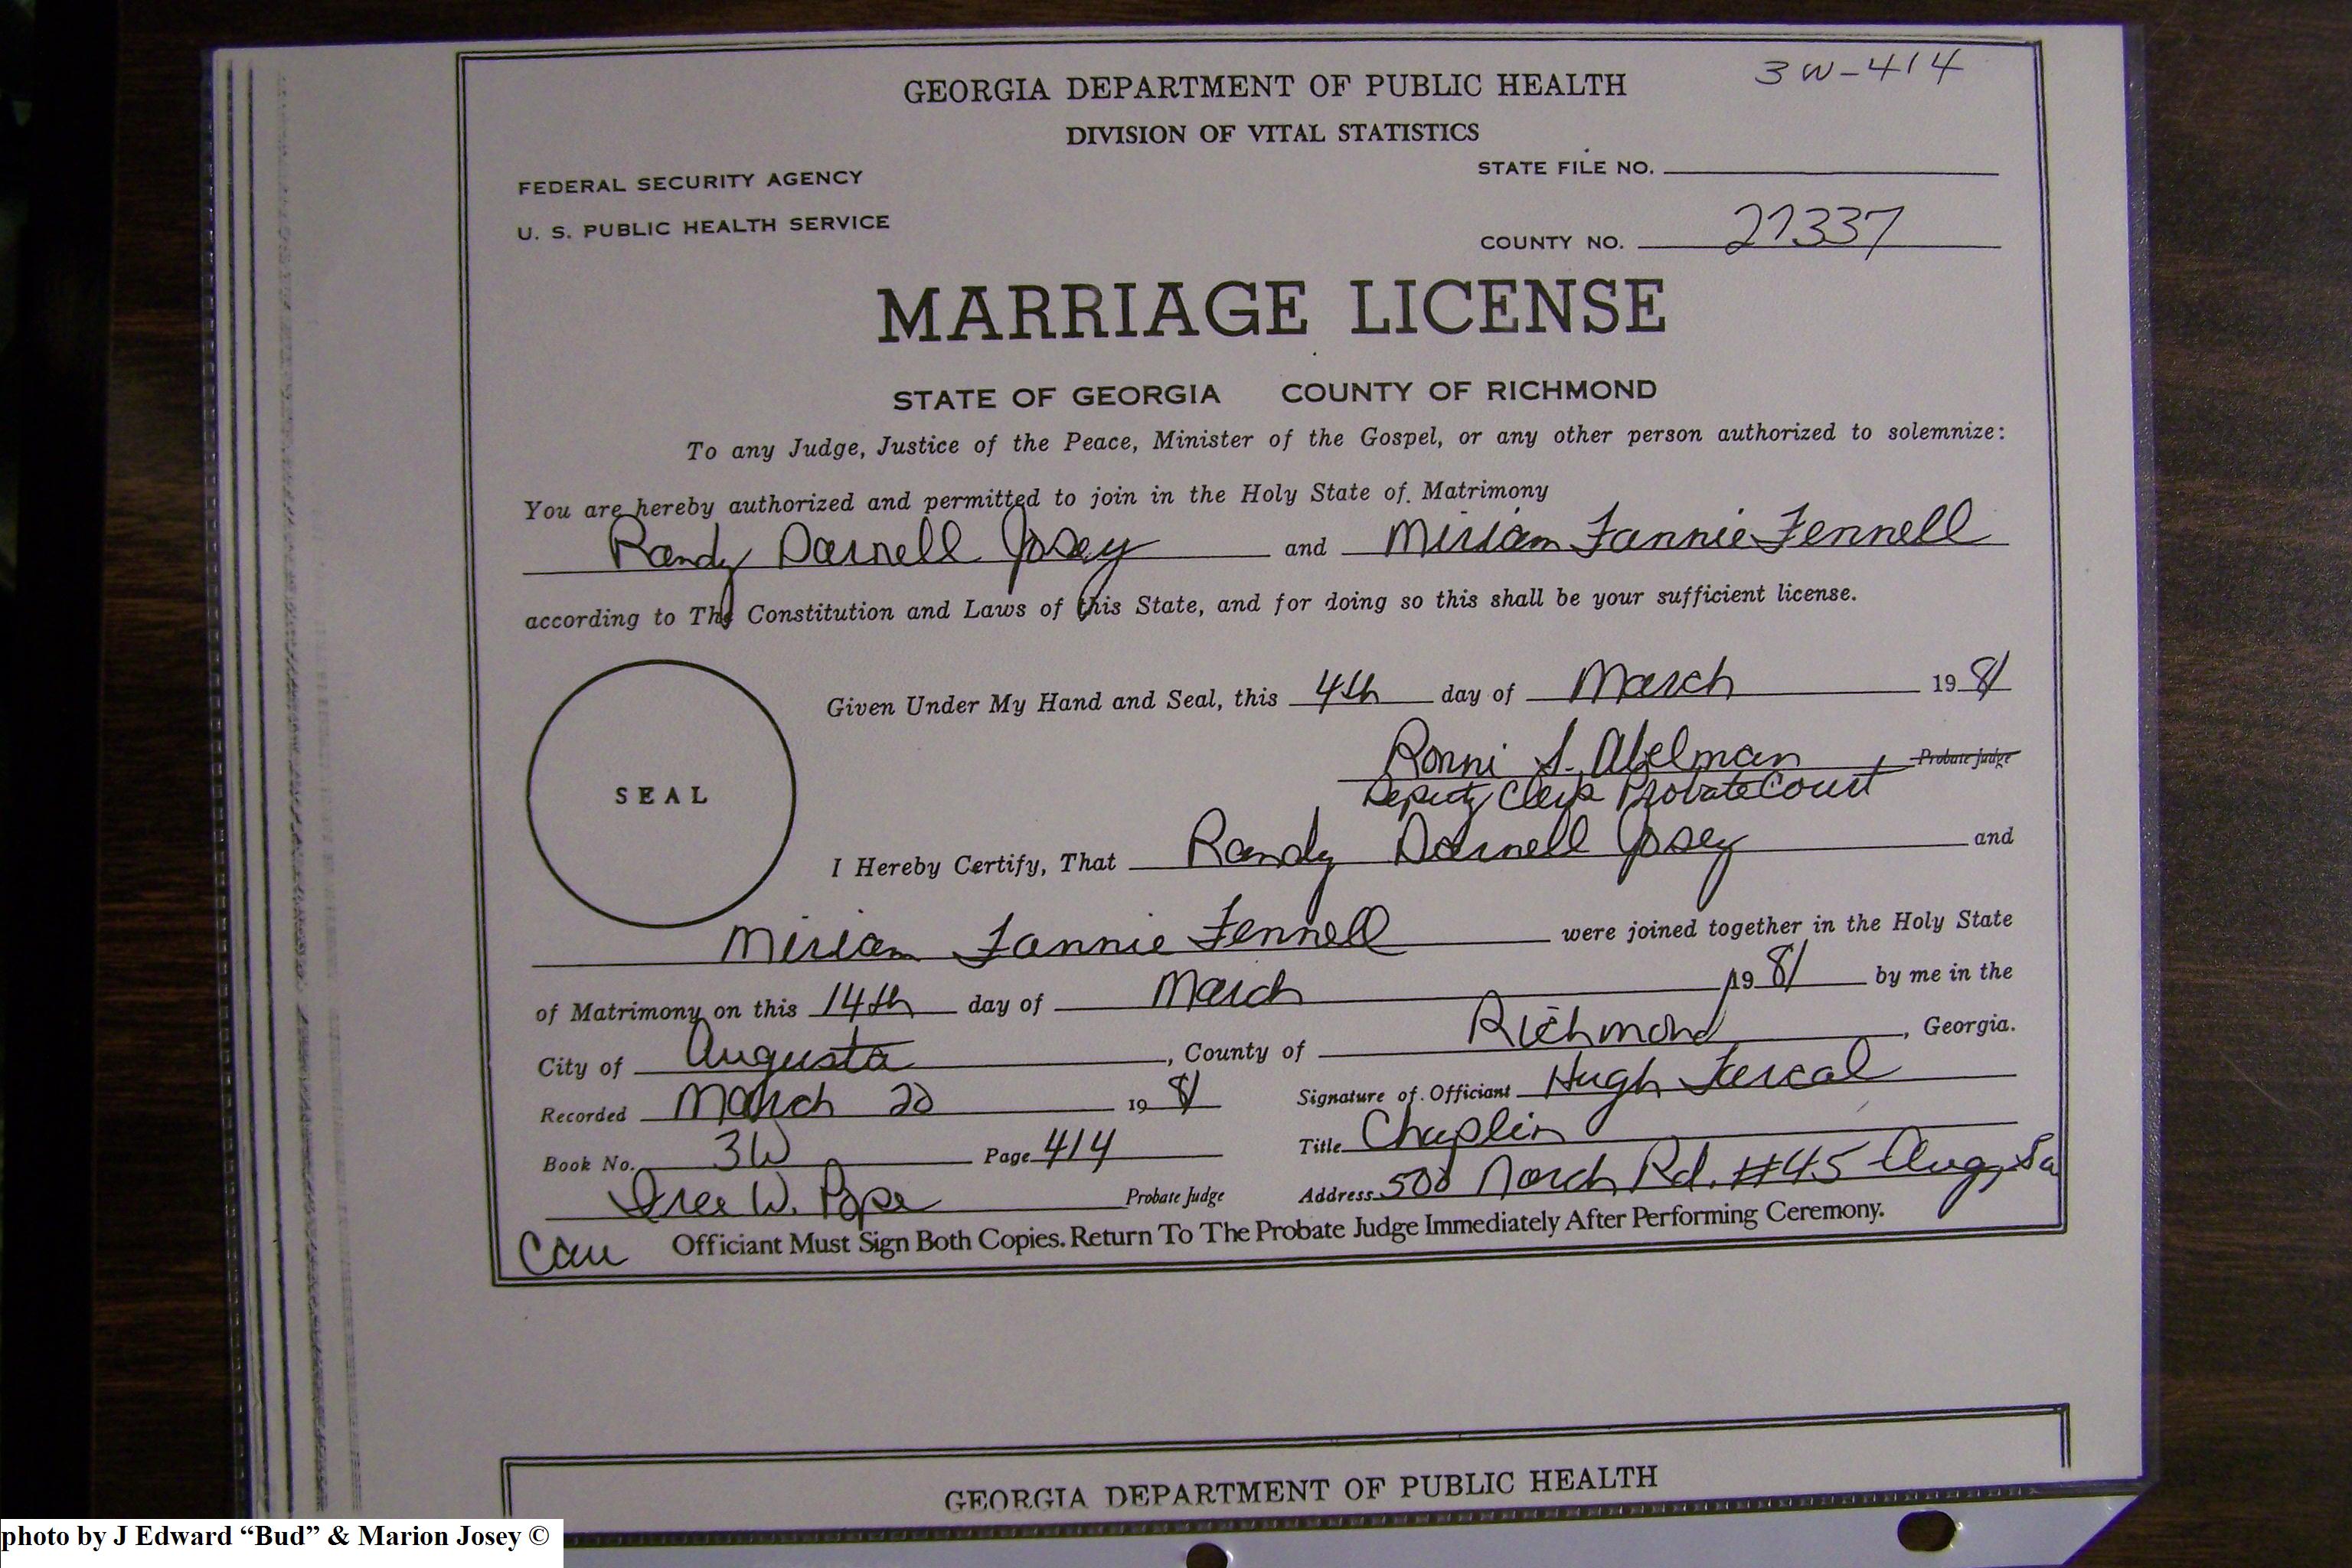 3W-414
GEORGIA DEPARTMENT OF PUBLIC HEALTH
DIVISION OF VITAL STATISTICS
FEDERAL SECURITY AGENCY
STATE FILE NO.
U. S. PUBLIC HEALTH SERVICE
COUNTY NO. 27337
MARRIAGE LICENSE
STATE OF GEORGIA COUNTY OF RICHMOND
To any Judge, Justice of the Peace, Minister of the Gospel, or any other person authorized to solemnize:
You are hereby authorized and permitted to join in the Holy State of Matrimony
Randy Darnell Josey and Miriam Fannie Fennell
according to The Constitution and Laws of this State, and for doing so this shall be your sufficient license.
Given Under My Hand and Seal, this 4th day of March 1981
Ronni S. Abelman Probate Judge
Deputy Clerk Probate Court
SEAL
I Hereby Certify, That Randy Darnell Josey and
Miriam Fannie Fennell were joined together in the Holy State
of Matrimony on this 14th day of March 1981 by me in the
City of Augusta, County of Richmond, Georgia.
Recorded March 20 1981 Signature of Officiant Hugh
Book No. 3W Page 414 Title Chaplin
W. Pope Probate Judge Address 500 Rd. #45 Aug, Ga
Officiant Must Sign Both Copies. Return To The Probate Judge Immediately After Performing Ceremony.
GEORGIA DEPARTMENT OF PUBLIC HEALTH
photo by J Edward “Bud” & Marion Josey ©